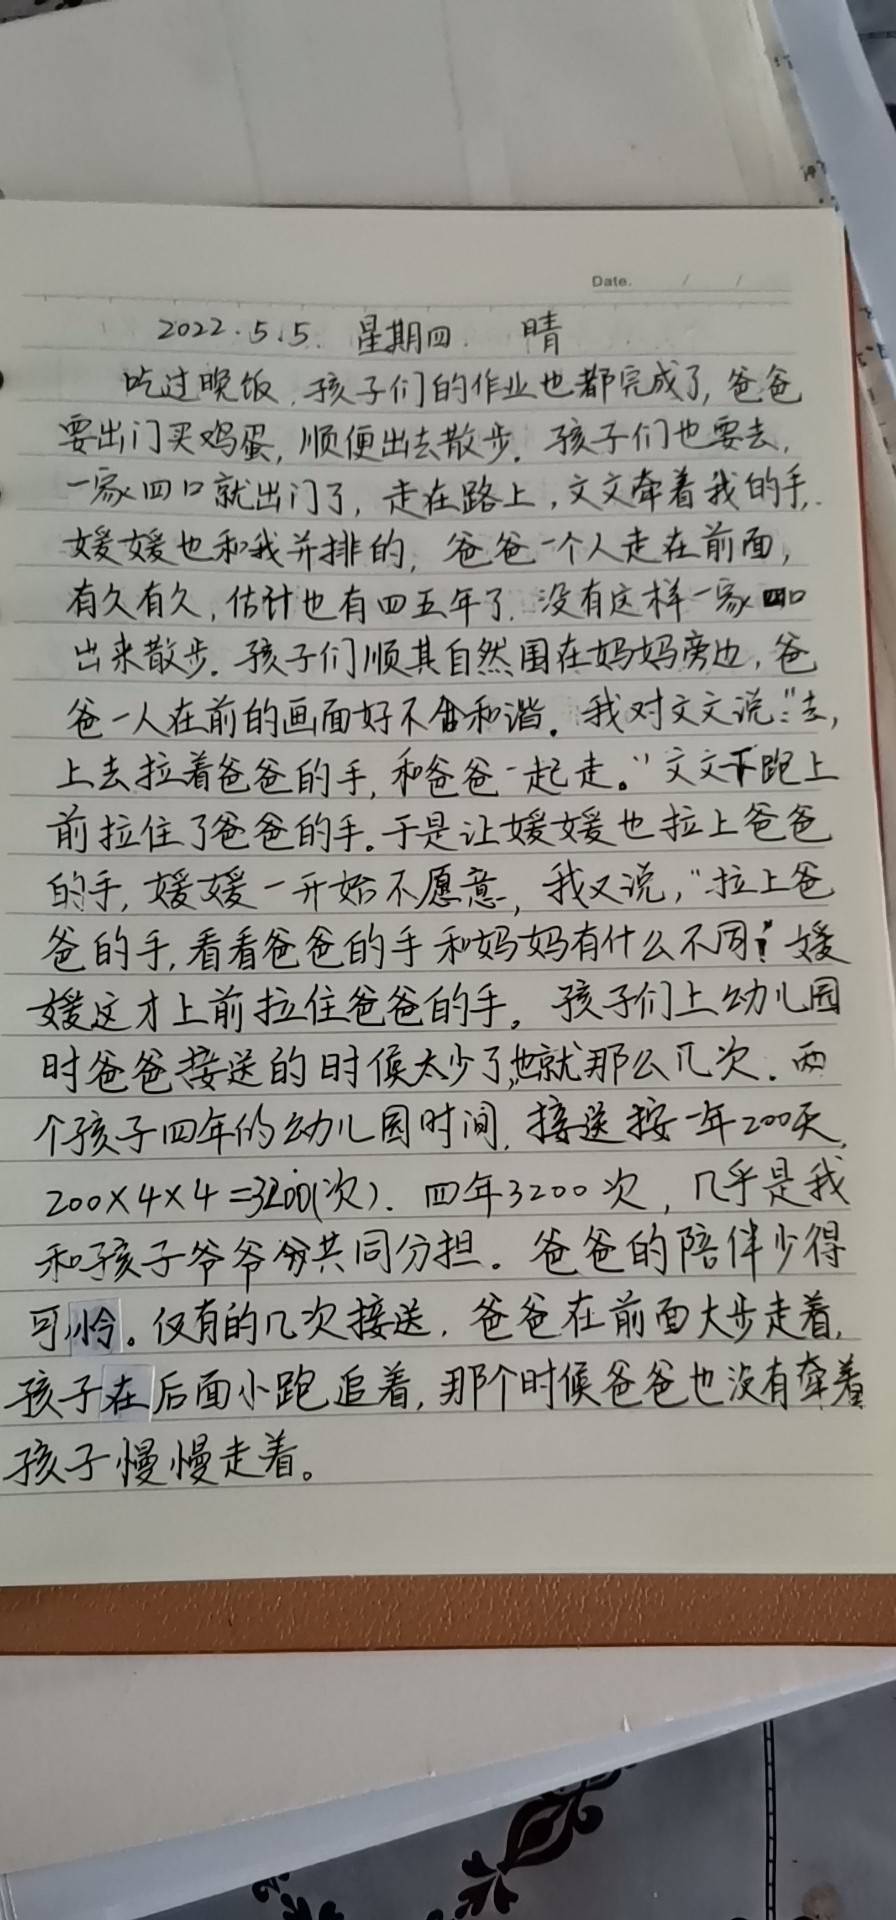 Date. / /
2022.5.5. 星期四. 晴
吃过晚饭,孩子们的作业也都完成了,爸爸
要出门买鸡蛋,顺便出去散步.孩子们也要去,
一家四口就出门了,走在路上,文文牵着我的手,
媛媛也和我并排的,爸爸一个人走在前面,
有久有久,估计也有四五年了.没有这样一家四口
出来散步.孩子们顺其自然围在妈妈旁边,爸
爸一人在前的画面好不和谐.我对文文说:"去,
上去拉着爸爸的手,和爸爸一起走。"文文跑上
前拉住了爸爸的手。于是让媛媛也拉上爸爸
的手,媛媛一开始不愿意,我又说,"拉上爸
爸的手,看看爸爸的手和妈妈有什么不同?媛
媛这才上前拉住爸爸的手。孩子们上幼儿园
时爸爸接送的时候太少了,也就那么几次.两
个孩子四年的幼儿园时间,接送按一年200天,
200×4×4=3200(次).四年3200次,几乎是我
和孩子爷爷共同分担。爸爸的陪伴少得
可怜。仅有的几次接送,爸爸在前面大步走着,
孩子在后面小跑追着,那个时候爸爸也没有牵着
孩子慢慢走着。